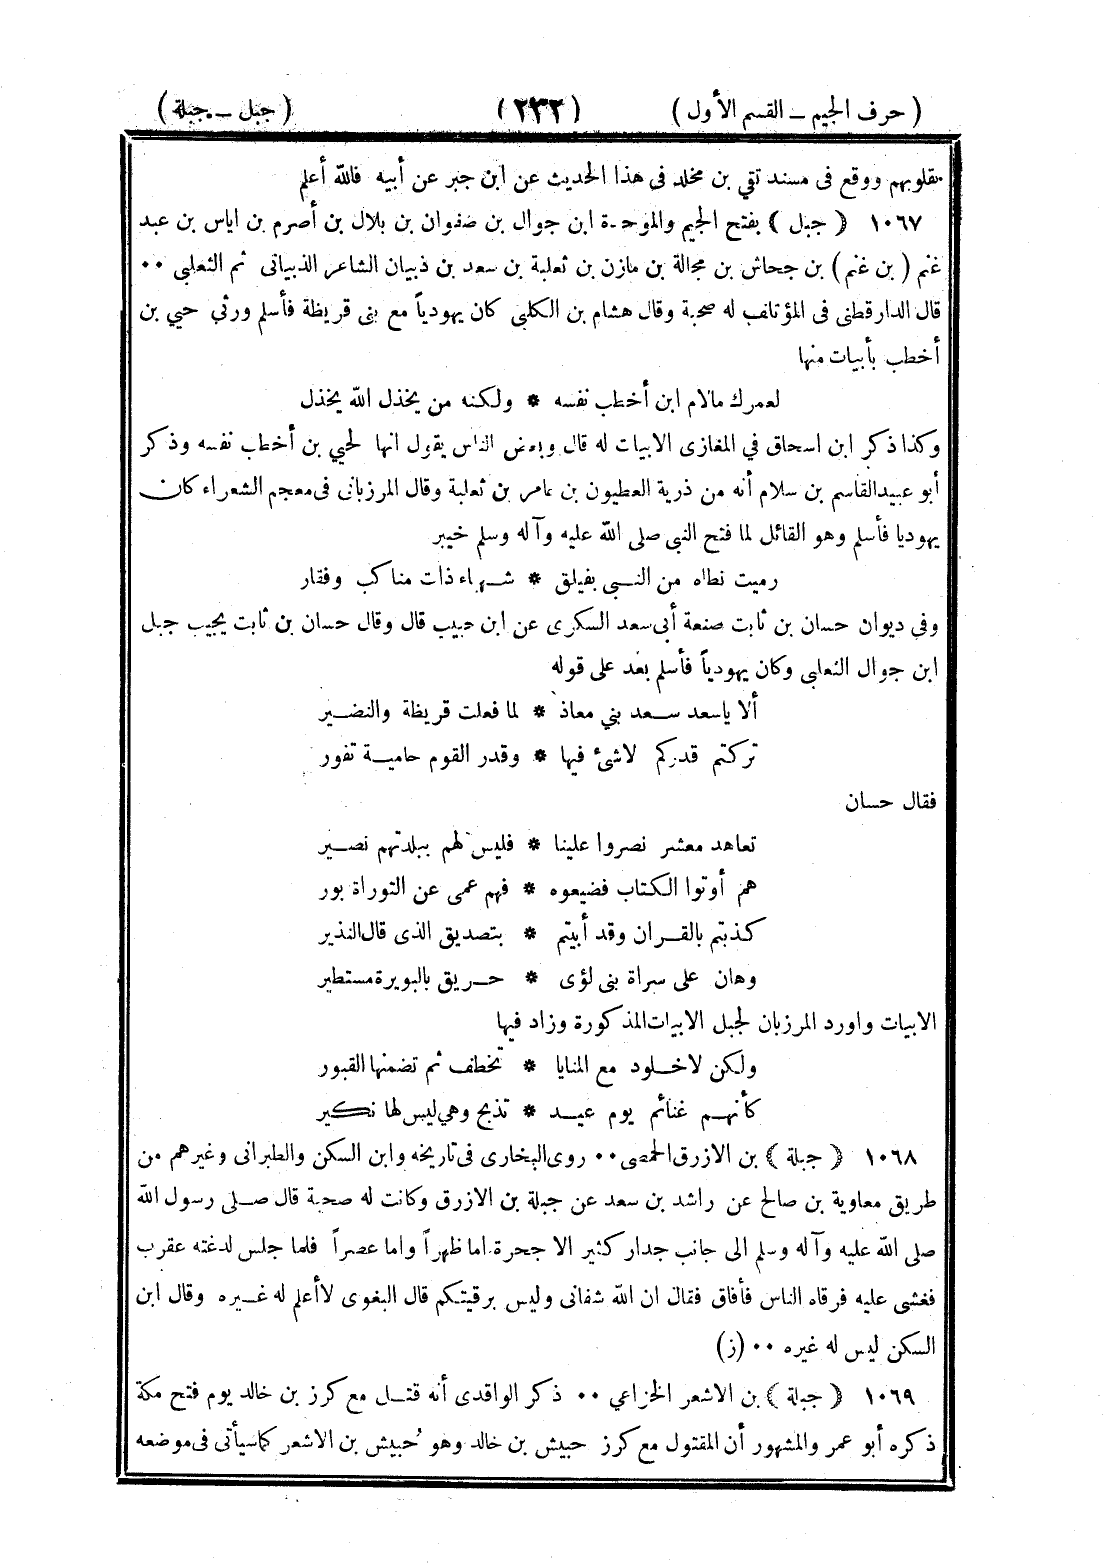 ( حرف الجيم ــ القسم الأول ) (٢٣٢) ( جبل ــ جبلة )
بقلوبهم ووقع فى مسند تقي بن مخلد فى هذا الحديث عن ابن جبر عن أبيه فالله أعلم
١٠٦٧ ( جبل ) بفتح الجيم والموحدة ابن جوال بن صفوان بن بلال بن أصرم بن اياس بن عبد
غنم ( بن غنم ) بن جحاش بن مجالة بن مازن بن ثعلبة بن سعد بن ذبيان الشاعر الذبيانى ثم الثعلبي ٠٠
قال الدارقطنى فى المؤتلف له صحبة وقال هشام بن الكلبى كان يهودياً مع بنى قريظة فأسلم ورثي حيي بن
أخطب بأبيات منها
لعمرك مالام ابن أخطب نفسه * ولكنه من يخذل الله يخذل
وكذا ذكر ابن اسحاق في المغازى الابيات له قال وبعض الناس يقول انها لحيي بن أخطب نفسه وذكر
أبو عبيدالقاسم بن سلام أنه من ذرية العطيون بن عامر بن ثعلبة وقال المرزبانى فى معجم الشعراء كان
يهوديا فأسلم وهو القائل لما فتح النبي صلى الله عليه وآله وسلم خيبر
رميت نطاه من النــبى بفيلق * شــهباء ذات مناكب وفقار
وفي ديوان حسان بن ثابت صنعة أبى سعد السكرى عن ابن حبيب قال وقال حسان بن ثابت يجيب جبل
ابن جوال الثعلبي وكان يهودياً فأسلم بعد على قوله
ألا ياسعد ســعد بني معاذ * لما فعلت قريظة والنضــير
تركتم قدركم لاشئ فيها * وقدر القوم حاميــة تفور
فقال حسان
تعاهد معشر نصروا علينا * فليس لهم ببلدتهم نصــير
هم أوتوا الكتاب فضيعوه * فهم عمى عن التوراة بور
كذبتم بالقــران وقد أبيتم * بتصديق الذى قال النذير
وهان على سراة بنى لؤى * حــريق بالبويرة مستطير
الابيات واورد المرزبان لجبل الابيات المذكورة وزاد فيها
ولكن لاخــلود مع المنايا * تخطف ثم تضمنها القبور
كأنهــم غنائم يوم عيــد * تذبح وهي ليس لها نكير
١٠٦٨ ( جبلة ) بن الازرق الحمصى ٠٠ روى البخارى فى تاريخه وابن السكن والطبرانى وغيرهم من
طريق معاوية بن صالح عن راشد بن سعد عن جبلة بن الازرق وكانت له صحبة قال صــلى رسول الله
صلى الله عليه وآله وسلم الى جانب جدار كثير الاجحرة اما ظهراً واما عصراً فلما جلس لدغته عقرب
فغشى عليه فرقاه الناس فأفاق فقال ان الله شفانى وليس برقيتكم قال البغوى لا أعلم له غــيره وقال ابن
السكن ليس له غيره ٠٠ (ز)
١٠٦٩ ( جبلة ) بن الاشعر الخزاعي ٠٠ ذكر الواقدى أنه قتــل مع كرز بن خالد يوم فتح مكة
ذكره أبو عمر والمشهور أن المقتول مع كرز حبيش بن خالد وهو حبيش بن الاشعر كما سيأتى فى موضعه